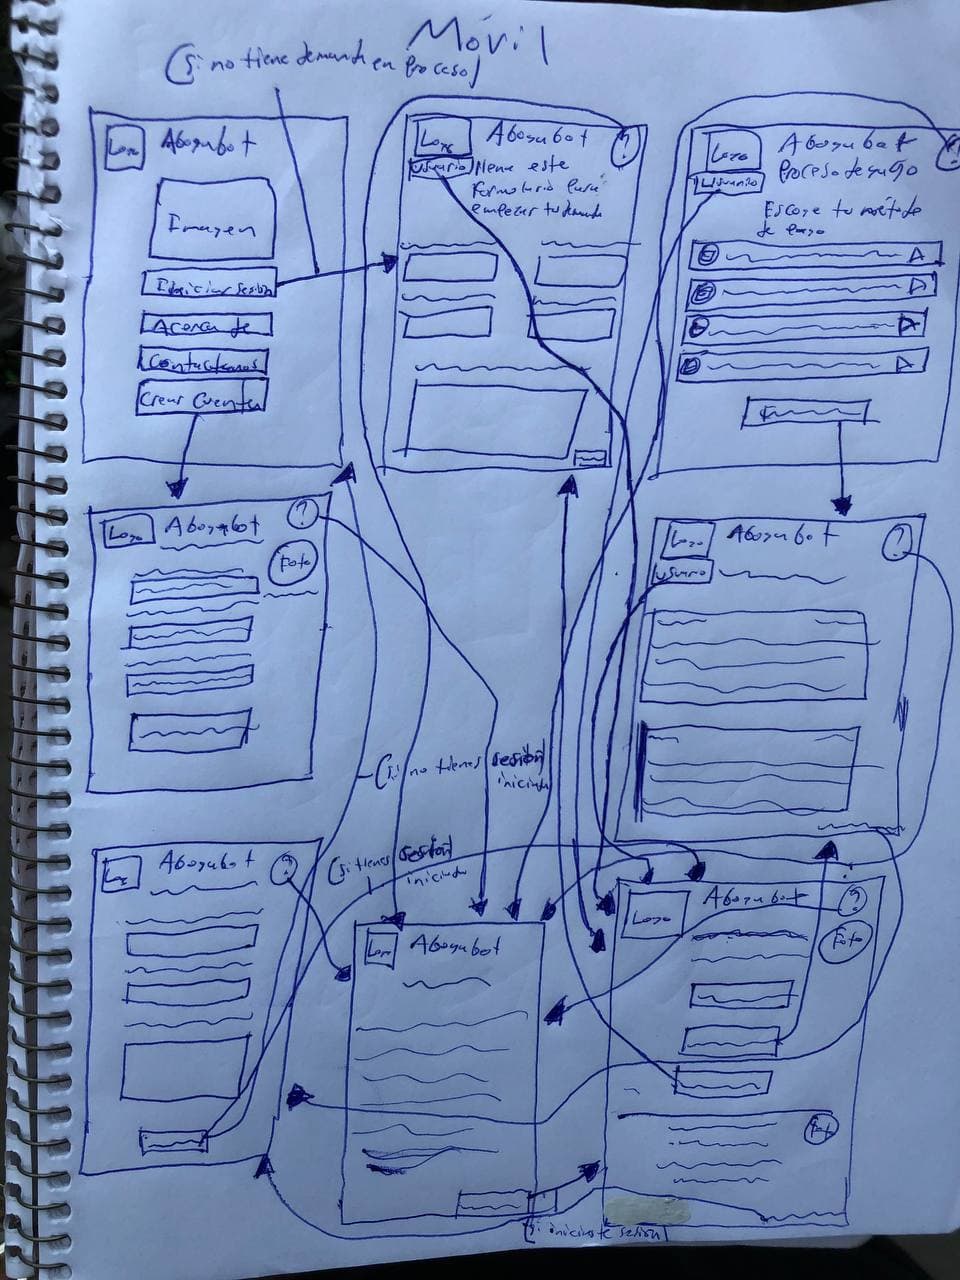 Móvil
(Si no tiene demanda en Proceso)
Logo
Abogabot
Imagen
Iniciar sesion
Acerca de
Contactanos
Crear Cuenta
Logo
Abogabot
?
Usuario
llena este
Formulario para
empezar tu demanda
Logo
Abogabot
?
Usuario
Proceso de pago
Escoge tu método
de pago
Logo
Abogabot
?
Foto
Logo
Abogabot
?
Usuario
(si no tienes sesión
iniciada
(si tienes sesión
iniciada
Logo
Abogabot
?
Logo
Abogabot
Logo
Abogabot
?
Foto
Foto
(si iniciaste sesión)